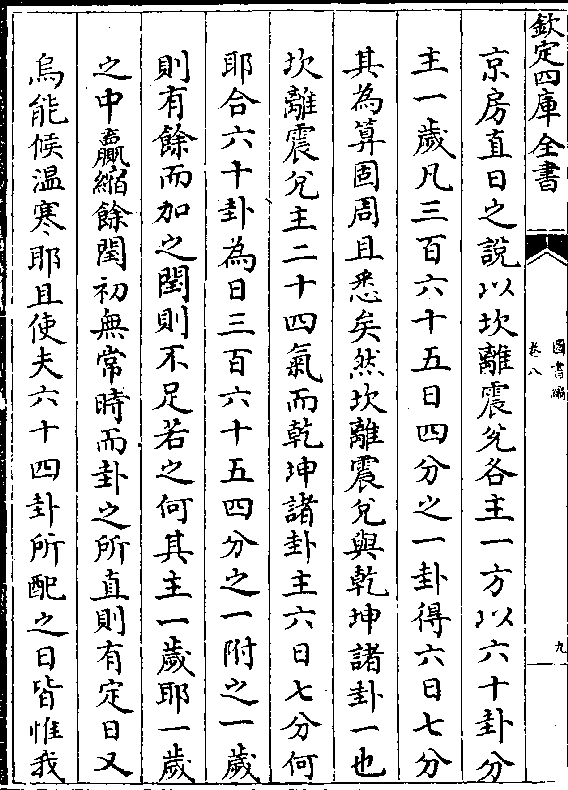 欽定四庫全書
圖書編
卷八
九
京房直日之說以坎離震兊各主一方以六十卦分
主一歲凡三百六十五日四分之一卦得六日七分
其為算固周且悉矣然坎離震兊與乾坤諸卦一也
坎離震兊主二十四氣而乾坤諸卦主六日七分何
耶合六十卦為日三百六十五四分之一附之一歲
則有餘而加之閏則不足若之何其主一歲耶一歲
之中贏縮餘閏初無常時而卦之所直則有定日又
烏能候温寒耶且使夫六十四卦所配之日皆惟我